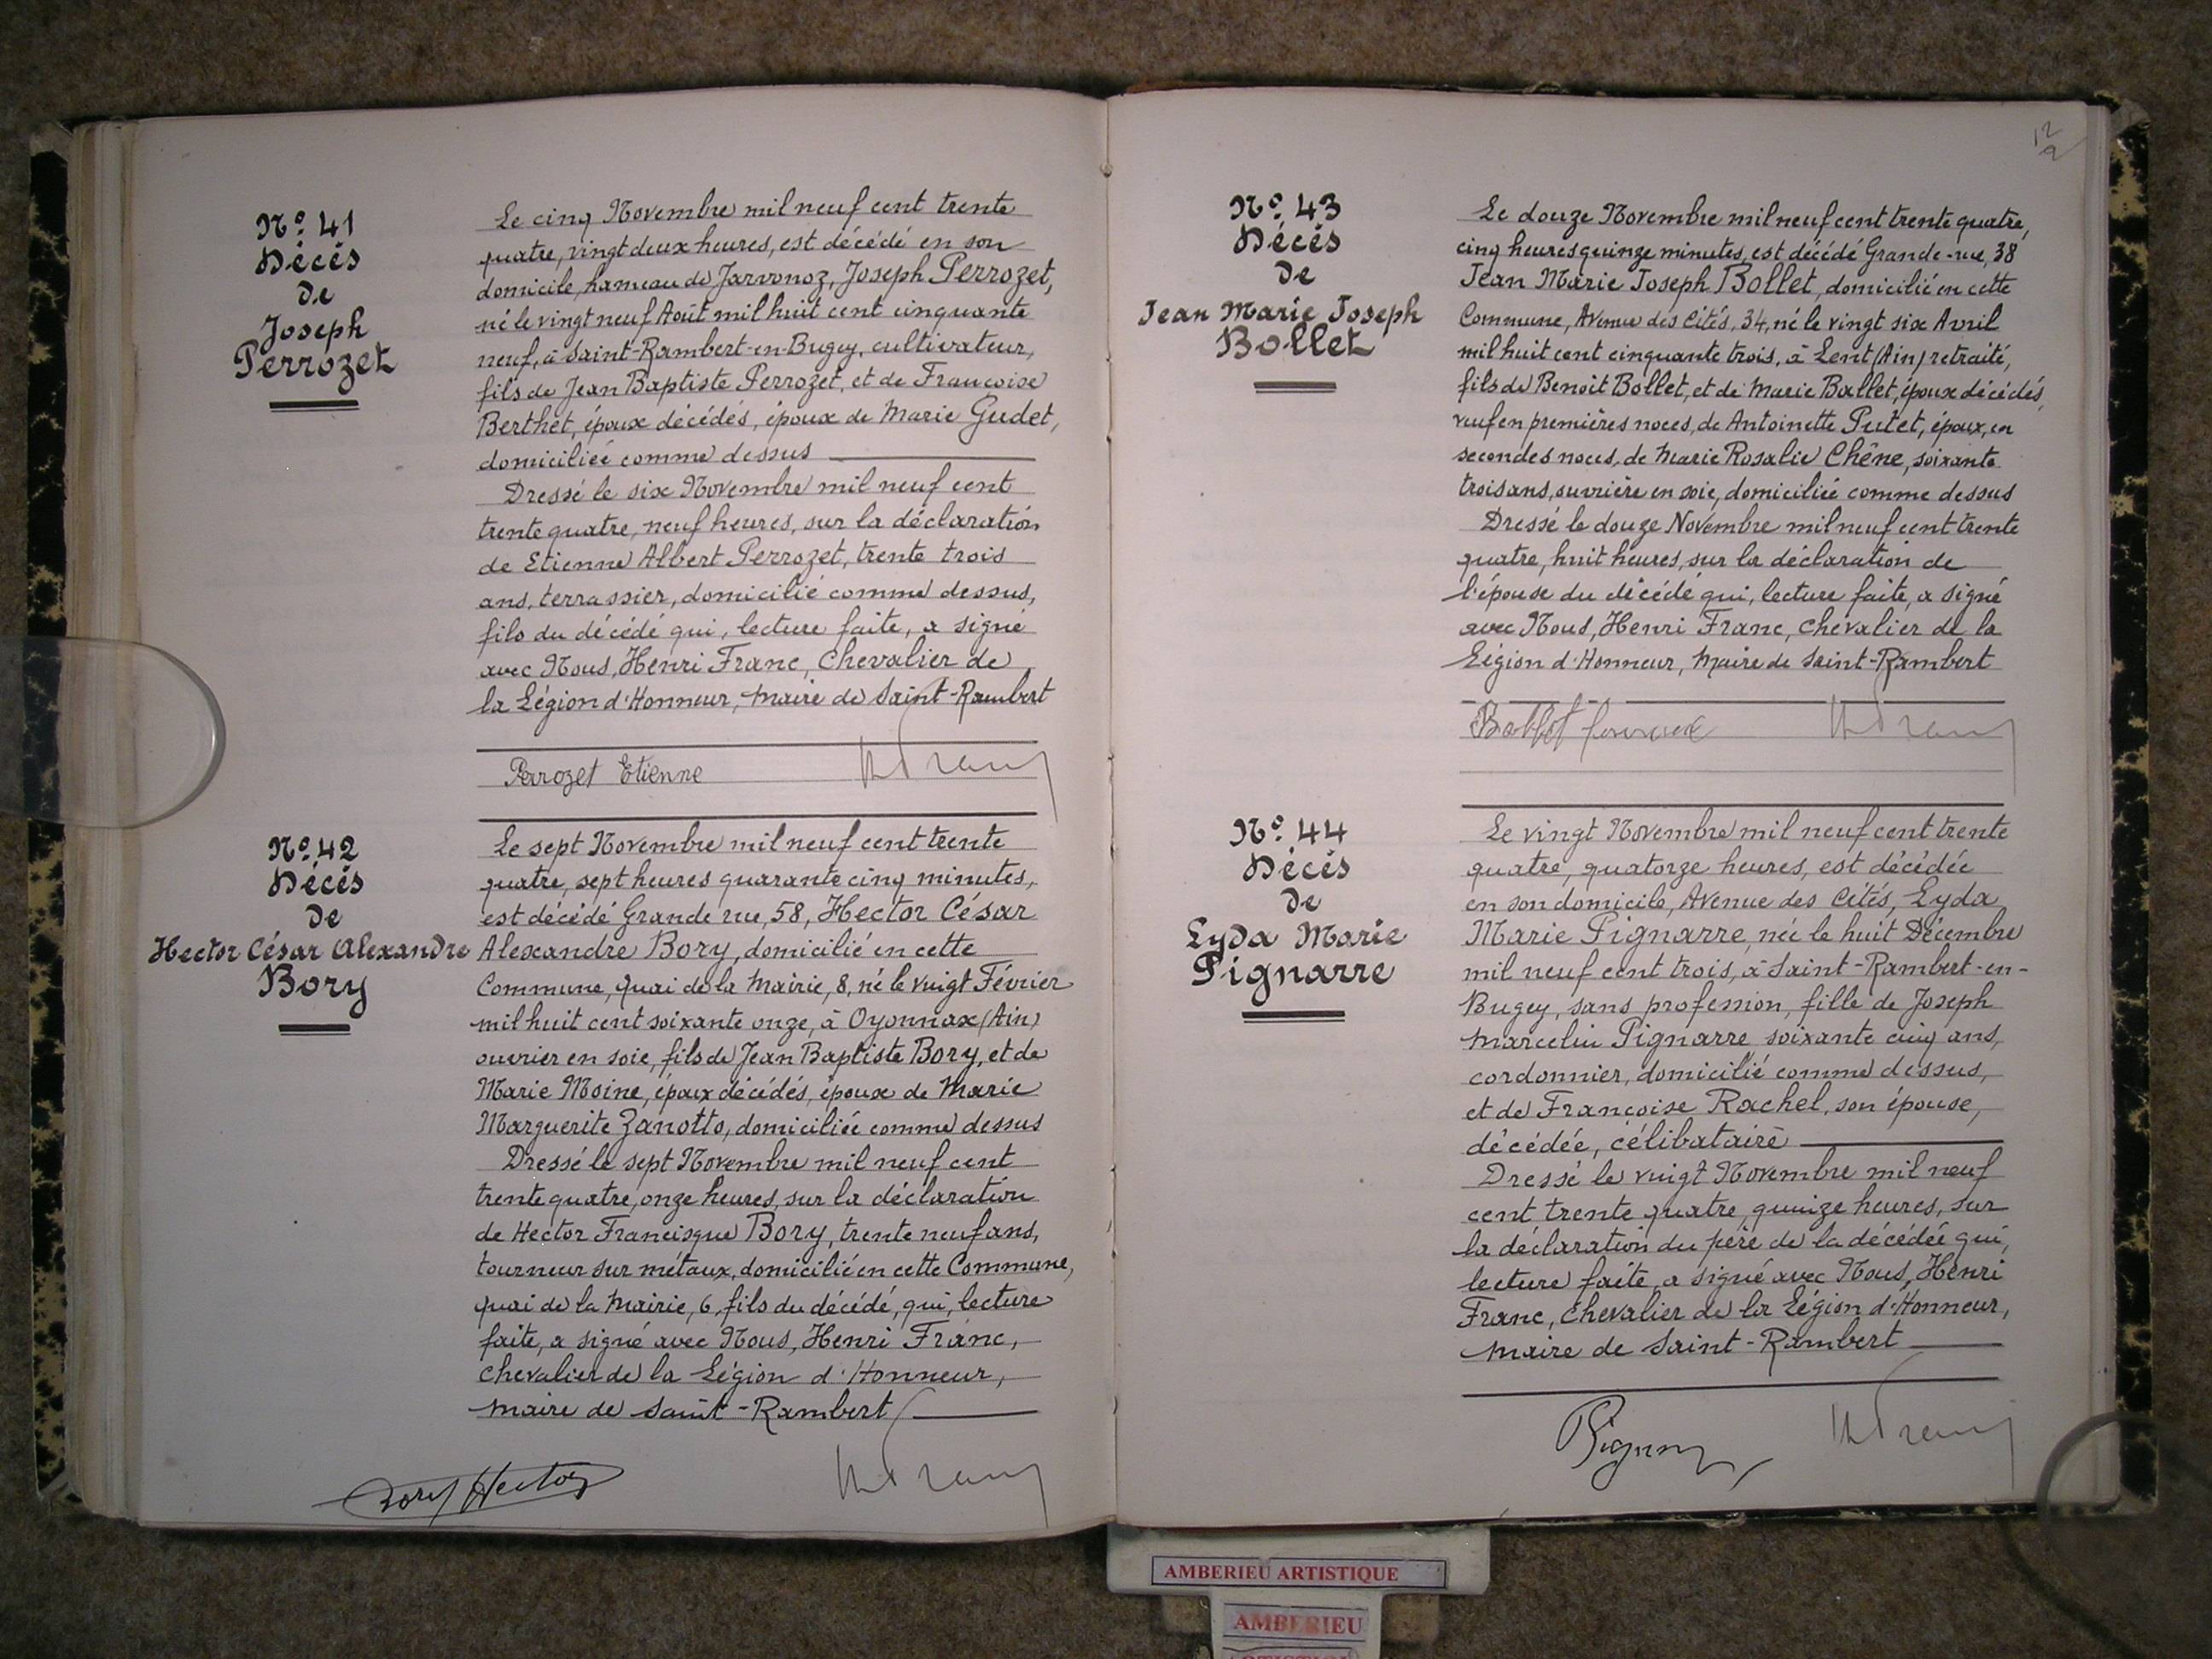 Nº 41
Décès
de
Joseph
Perrozet
Le cinq Novembre mil neuf cent trente
quatre, vingt deux heures, est décédé en son
domicile, hameau de Javornoz, Joseph Perrozet,
né le vingt neuf Août mil huit cent cinquante
neuf, à Saint-Rambert-en-Bugey, cultivateur,
fils de Jean Baptiste Perrozet, et de Francoise
Berthet, époux décédés, époux de Marie Gudet,
domiciliée comme dessus
Dressé le six Novembre mil neuf cent
trente quatre, neuf heures, sur la déclaration
de Etienne Albert Perrozet, trente trois
ans, terrassier, domicilié comme dessus,
fils du décédé qui, lecture faite, a signé
avec Nous, Henri Franc, Chevalier de
la Légion d'Honneur, Maire de Saint-Rambert
Perrozet Etienne
Nº 42
Décès
de
Hector César Alexandre
Bory
Le sept Novembre mil neuf cent trente
quatre, sept heures quarante cinq minutes,
est décédé Grande rue, 58, Hector César
Alexandre Bory, domicilié en cette
Commune, quai de la Mairie, 8, né le vingt Février
mil huit cent soixante onze, à Oyonnax (Ain)
ouvrier en soie, fils de Jean Baptiste Bory, et de
Marie Moine, époux décédés, époux de Marie
Marguerite Zanotto, domiciliée comme dessus
Dressé le sept Novembre mil neuf cent
trente quatre, onze heures, sur la déclaration
de Hector Francisque Bory, trente neuf ans,
tourneur sur métaux, domicilié en cette Commune,
quai de la Mairie, 6, fils du décédé, qui, lecture
faite, a signé avec Nous, Henri Franc,
Chevalier de la Légion d'Honneur,
Maire de Saint-Rambert
Bory Hector
12
9
Nº 43
Décès
de
Jean Marie Joseph
Bollet
Le douze Novembre mil neuf cent trente quatre,
cinq heures quinze minutes, est décédé Grande-rue, 38
Jean Marie Joseph Bollet, domicilié en cette
Commune, Avenue des Cités, 34, né le vingt six Avril
mil huit cent cinquante trois, à Lent (Ain) retraité,
fils de Benoit Bollet, et de Marie Ballet, époux décédés,
veuf en premières noces, de Antoinette Putet, époux, en
secondes noces, de Marie Rosalie Chêne, soixante
trois ans, ouvrière en soie, domiciliée comme dessus
Dressé le douze Novembre mil neuf cent trente
quatre, huit heures, sur la déclaration de
l'épouse du décédé qui, lecture faite, a signé
avec Nous, Henri Franc, Chevalier de la
Légion d'Honneur, Maire de Saint-Rambert
Nº 44
Décès
de
Lyda Marie
Pignarre
Le vingt Novembre mil neuf cent trente
quatre, quatorze heures, est décédée
en son domicile, Avenue des Cités, Lyda
Marie Pignarre, née le huit Décembre
mil neuf cent trois, à Saint-Rambert-en-
Bugey, sans profession, fille de Joseph
Marcelin Pignarre soixante cinq ans,
cordonnier, domicilié comme dessus,
et de Françoise Rachel, son épouse,
décédée, célibataire
Dressé le vingt Novembre mil neuf
cent trente quatre, quinze heures, sur
la déclaration du père de la décédée qui,
lecture faite, a signé avec Nous, Henri
Franc, Chevalier de la Légion d'Honneur,
Maire de Saint-Rambert
AMBERIEU ARTISTIQUE
AMBERIEU
ARTISTIQUE